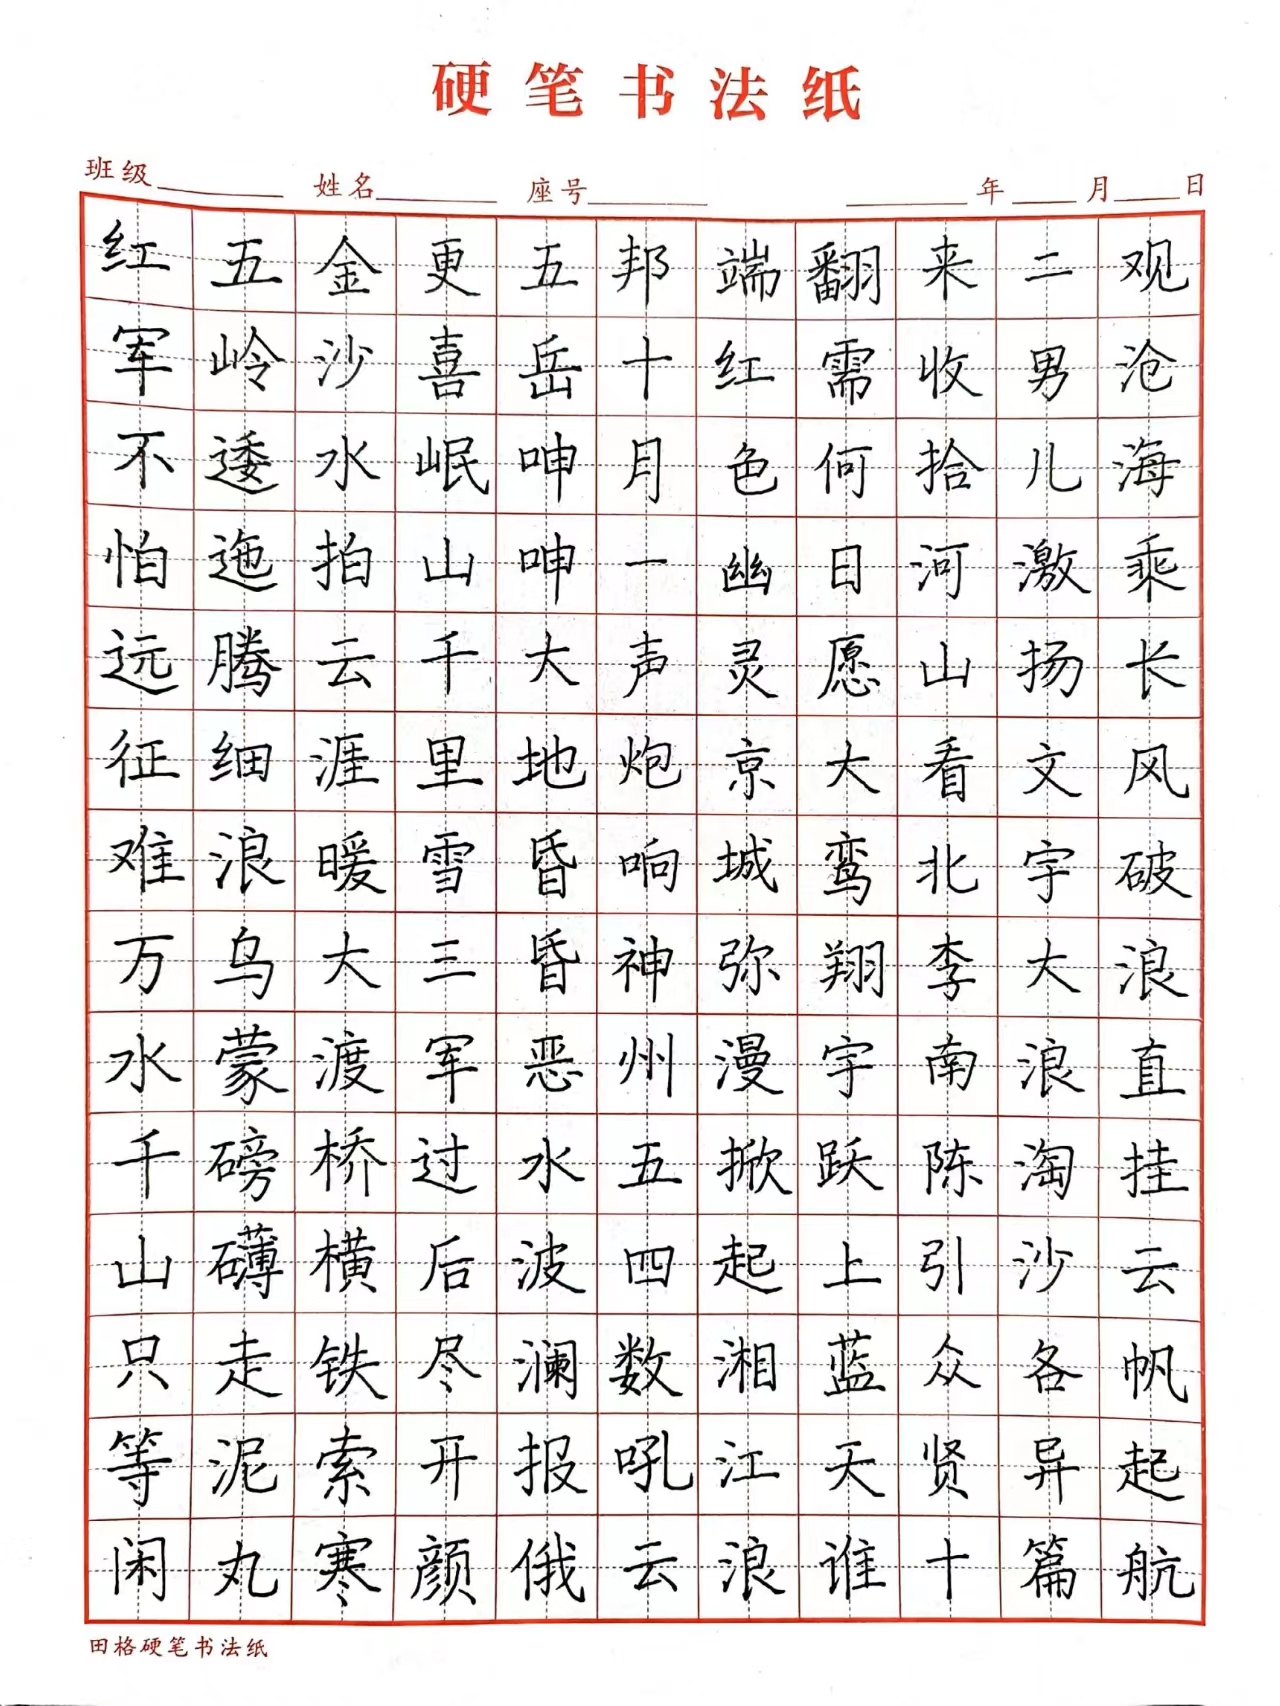 硬笔书法纸
班级 姓名 座号 年 月 日
红军不怕远征难万水千山只等闲
五岭逶迤腾细浪乌蒙磅礴走泥丸
金沙水拍云涯暖大渡桥横铁索寒
更喜岷山千里雪三军过后尽开颜
五岳呻呻大地昏昏恶水波澜报俄
邦十月一声炮响神州五四数吼云
端红色幽灵京城弥漫掀起湘江浪
翻需何日愿大鸾翔宇跃上蓝天谁
来收拾河山看北李南陈引众贤十
二男儿激扬文字大浪淘沙各异篇
观沧海乘长风破浪直挂云帆起航
田格硬笔书法纸